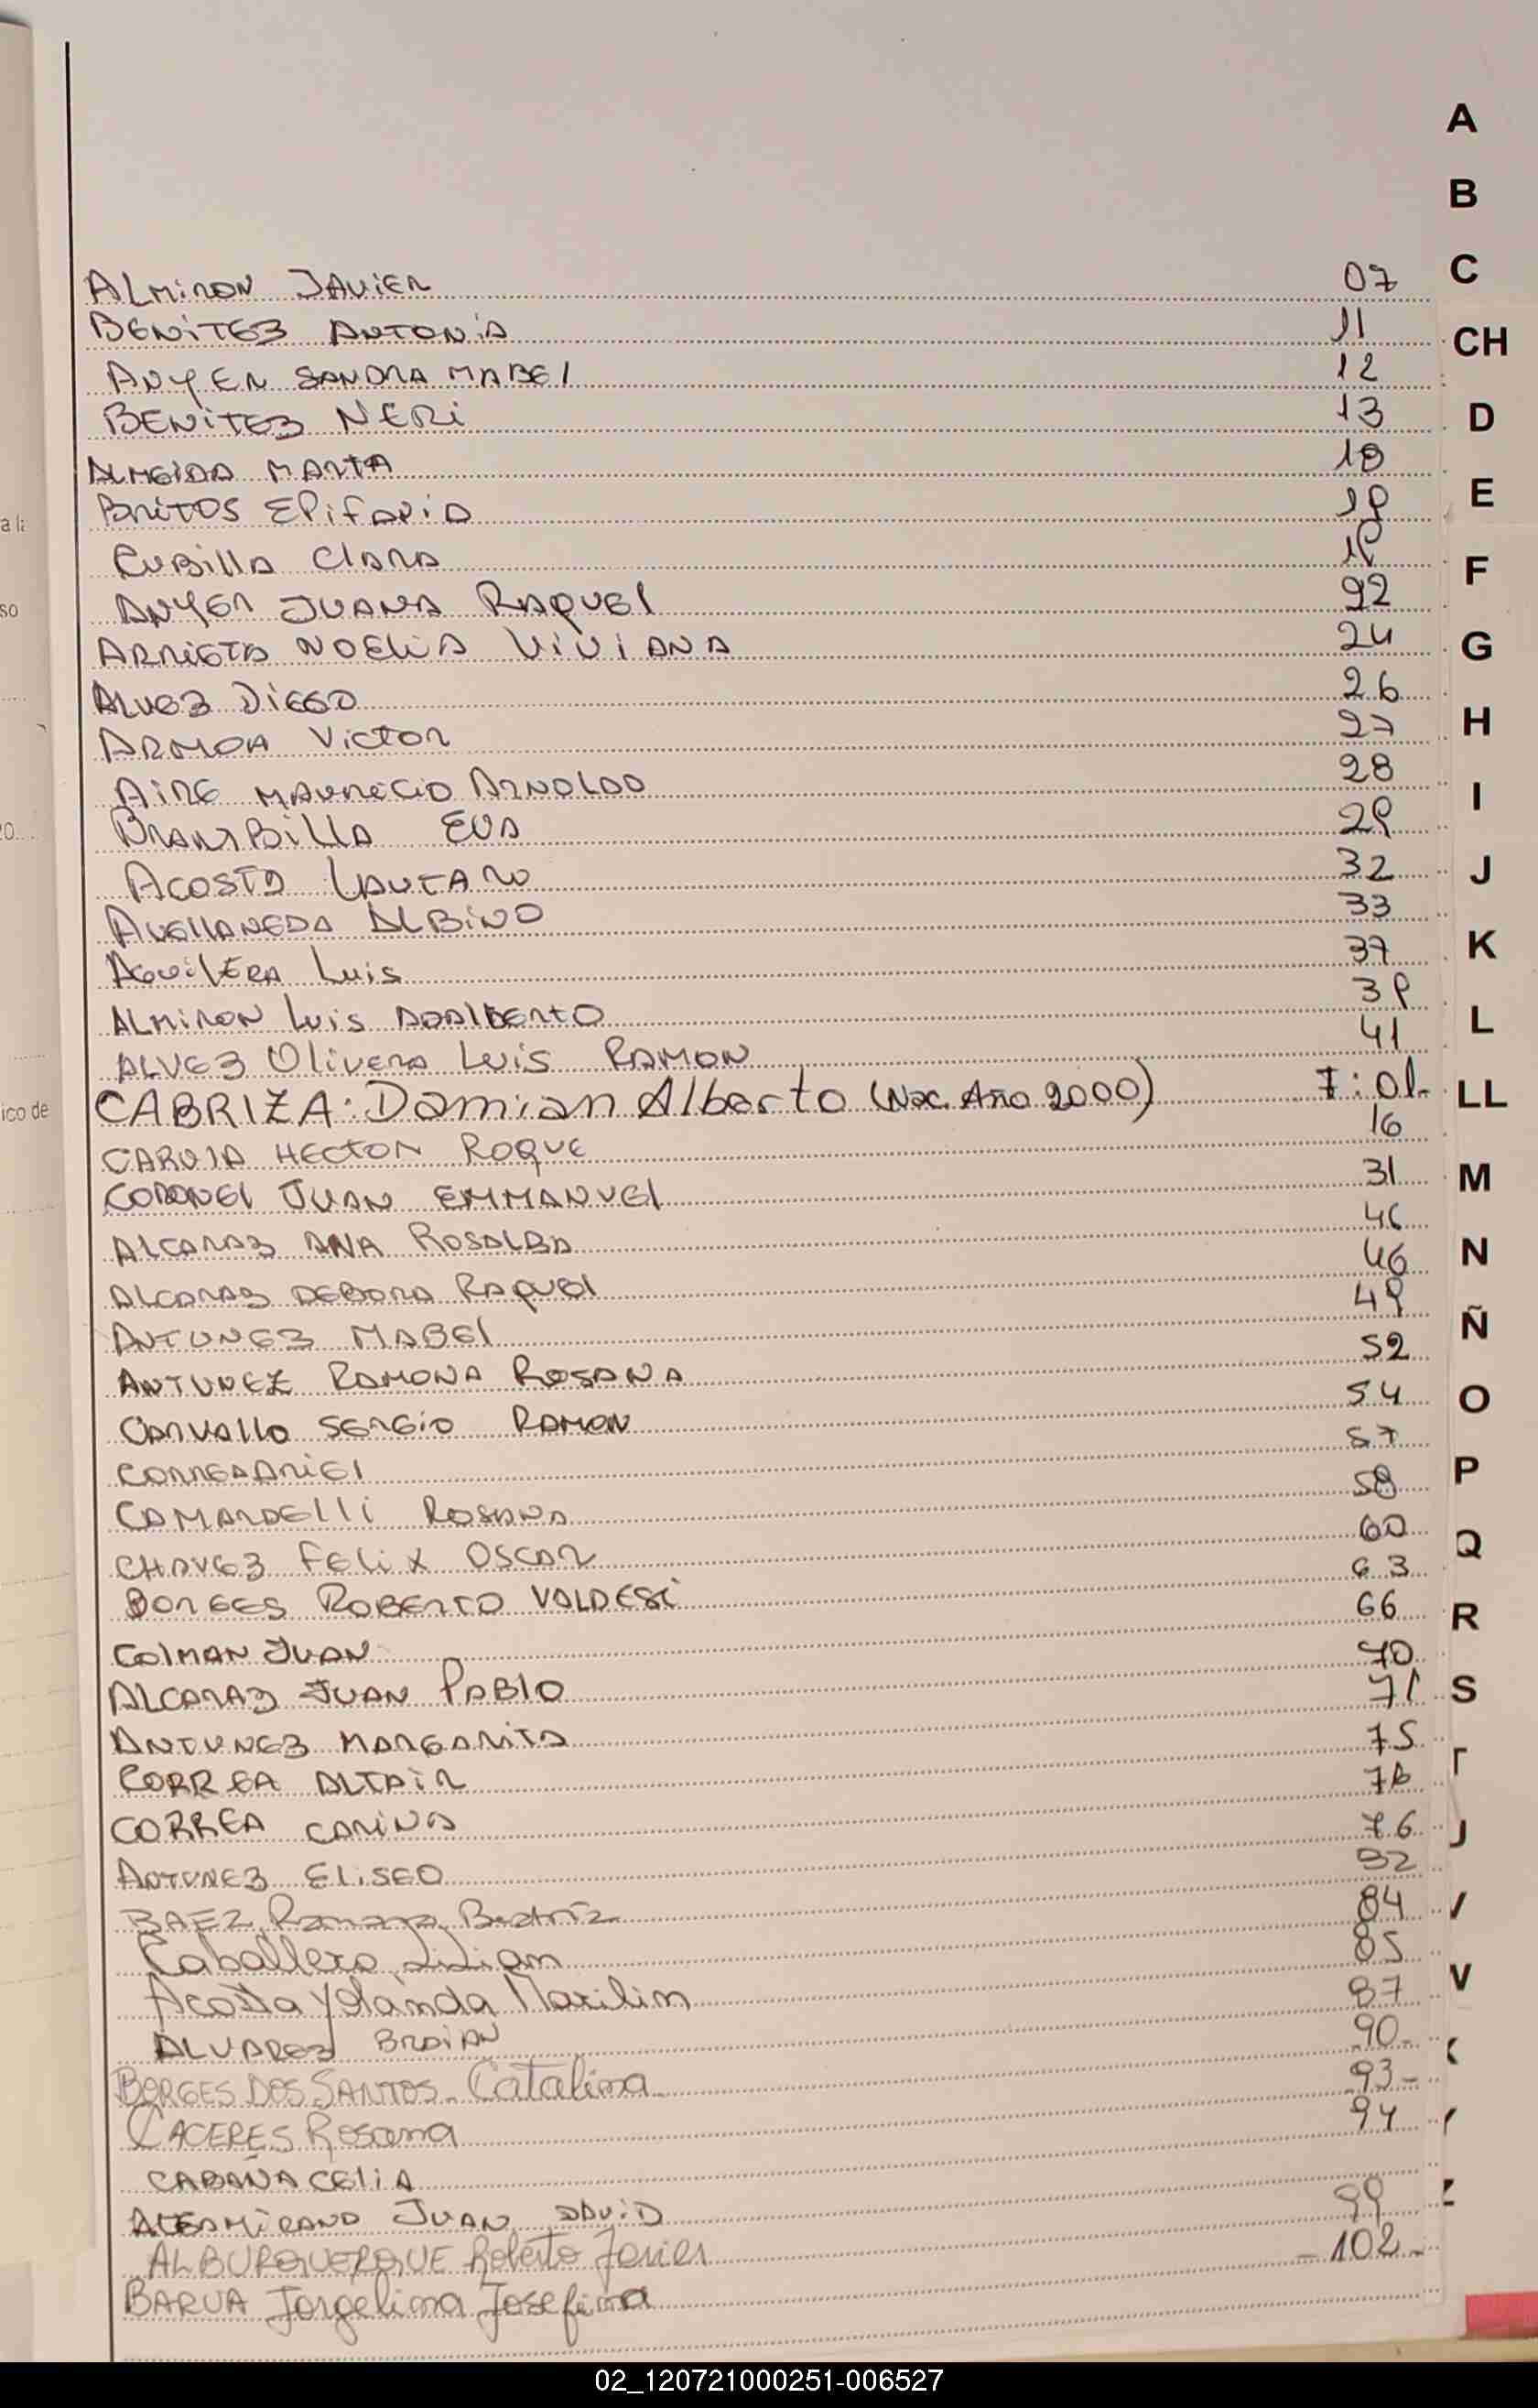 A
B
C
CH
D
E
F
G
H
I
J
K
L
LL
M
N
Ñ
O
P
Q
R
S
V
ALMIRON JAVIER 07
BENITEZ ANTONIA 11
ANYER SANDRA MABEL 12
BENITEZ NERI 13
ALMEIDA MARTA 18
BRITOS EPIFANIA 19
CUBILLA CLARA 19
ANYER JUANA RAQUEL 22
ARRIETA NOELIA VIVIANA 24
ALVEZ DIEGO 26
ARMOA VICTOR 27
AIRE MAURICIO ARNOLDO 28
BRAMBILLA EVA 29
ACOSTA LAUTARO 32
AVELLANEDA ALBINO 33
AGUILERA LUIS 37
ALMIRON LUIS ADALBERTO 39
ALVEZ OLIVERA LUIS RAMON 41
CABRIZA: Damian Alberto (Nac. Año 2000) F: 01-
CARVIA HECTOR ROQUE 16
CORONEL JUAN EMMANUEL 31
ALCARAZ ANA ROSALBA 46
ALCARAZ DEBORA RAQUEL 46
ANTUNEZ MABEL 49
ANTUNEZ RAMONA ROSANA 52
CARVALLO SERGIO RAMON 54
CORREA ARIEL 57
CAMARDELLI ROSANA 58
CHAVEZ FELIX OSCAR 60
BORGES ROBERTO VALDESI 63
COLMAN JUAN 66
ALCARAZ JUAN PABLO 70
ANTUNEZ MARGARITA 71
CORREA ALTAIR 75
CORREA CARINA
ANTUNEZ ELISEO 76
BAEZ Ramona Beatriz
Caballero Lilian 84
Acosta Yolanda Marilin 85
ALVAREZ BRAIAN 87
BORGES DOS SANTOS - Catalina 90-
CACERES Rosana 93-
CABAÑA CELIA 94
ALTAMIRANO JUAN DAVID
ALBURQUERQUE Roberto Javier 99
BARUA Jorgelina Josefina - 102 -
a la
so
20
ico de
02_120721000251-006527